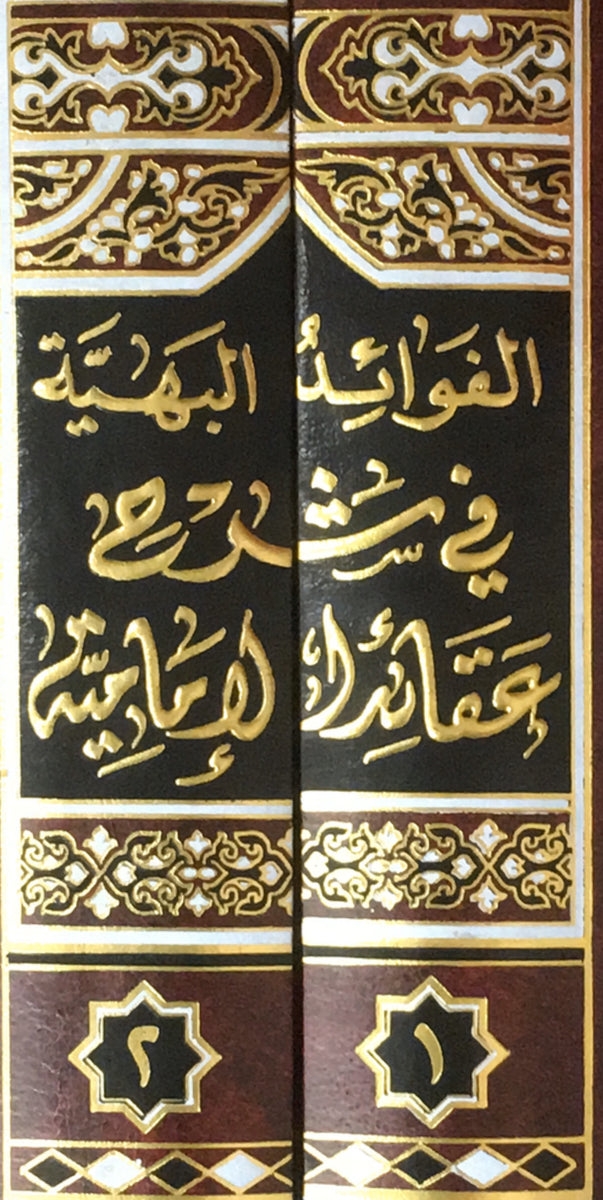 الفَوَائِدُ البَهَيَّة
في شَرح
عَقَائِد الإمَامِيَّة
١
٢